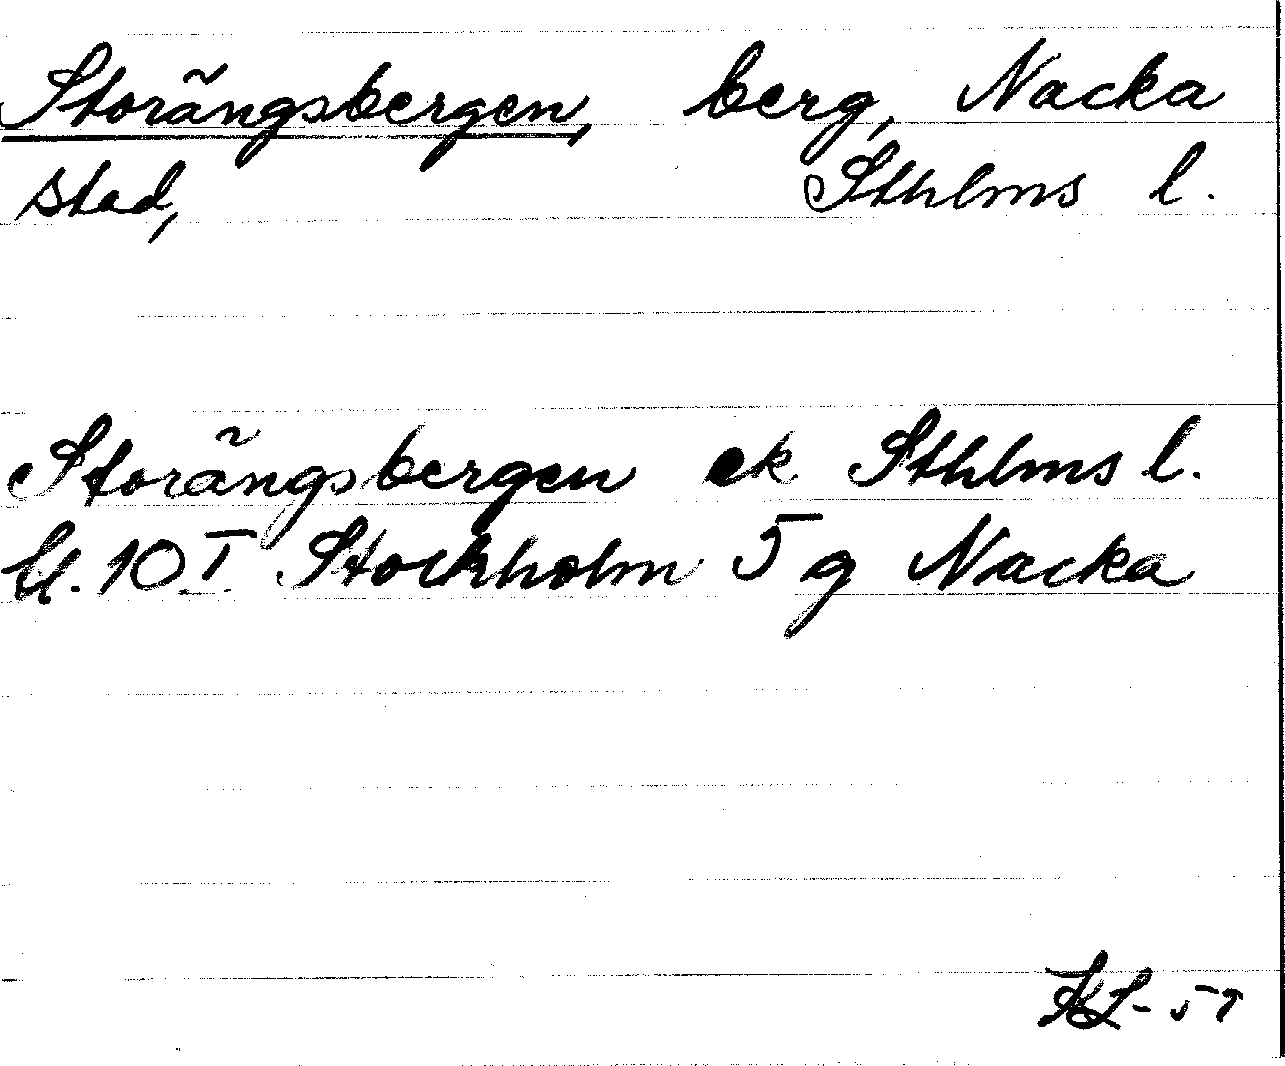 Storängsbergen, berg, Nacka
stad, Sthlms l.
Storängsbergen ek Sthlms l.
bl. 10 I Stockholm 5 g Nacka